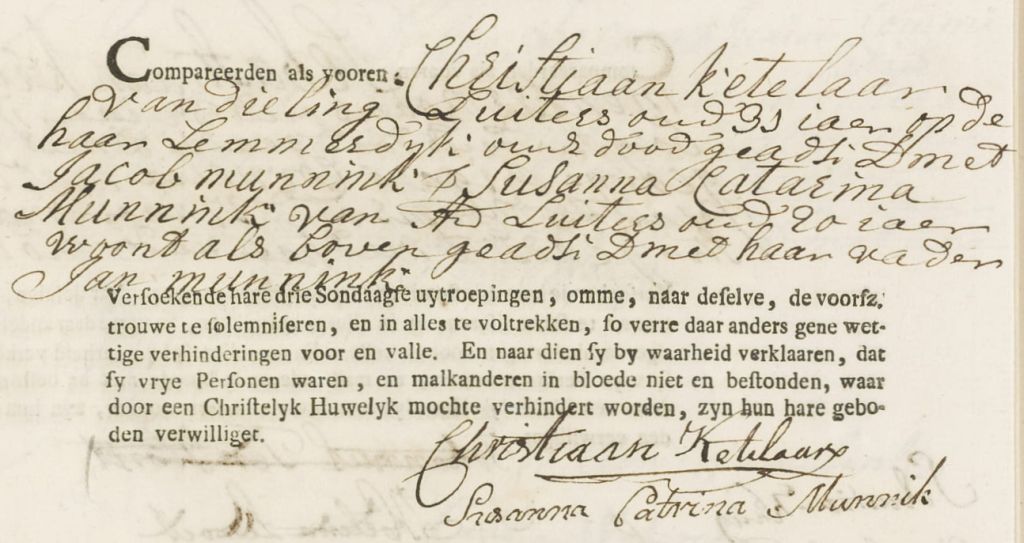 Compareerden als vooren: Christiaan ketelaar
van dieling Luiters oud 31 iaer op de
haar Lemmerdyk oud doodt geadsi D met
Jacob munnink & Susanna Catarina
Munnink van AD Luiters oud 20 iaer
woont als boven geadsi D met haar vader
Jan munnink
Versoekende hare drie Sondaagse uytroepingen, omme, naar deselve, de voorsz.
trouwe te solemniseren, en in alles te voltrekken, so verre daar anders gene wet-
tige verhinderingen voor en valle. En naar dien sy by waarheid verklaaren, dat
sy vrye Personen waren, en malkanderen in bloede niet en bestonden, waar
door een Christelyk Huwelyk mochte verhindert worden, zyn hun hare gebo-
den verwilliget.
Christiaan Ketelaar
Susanna Catrina Munnik